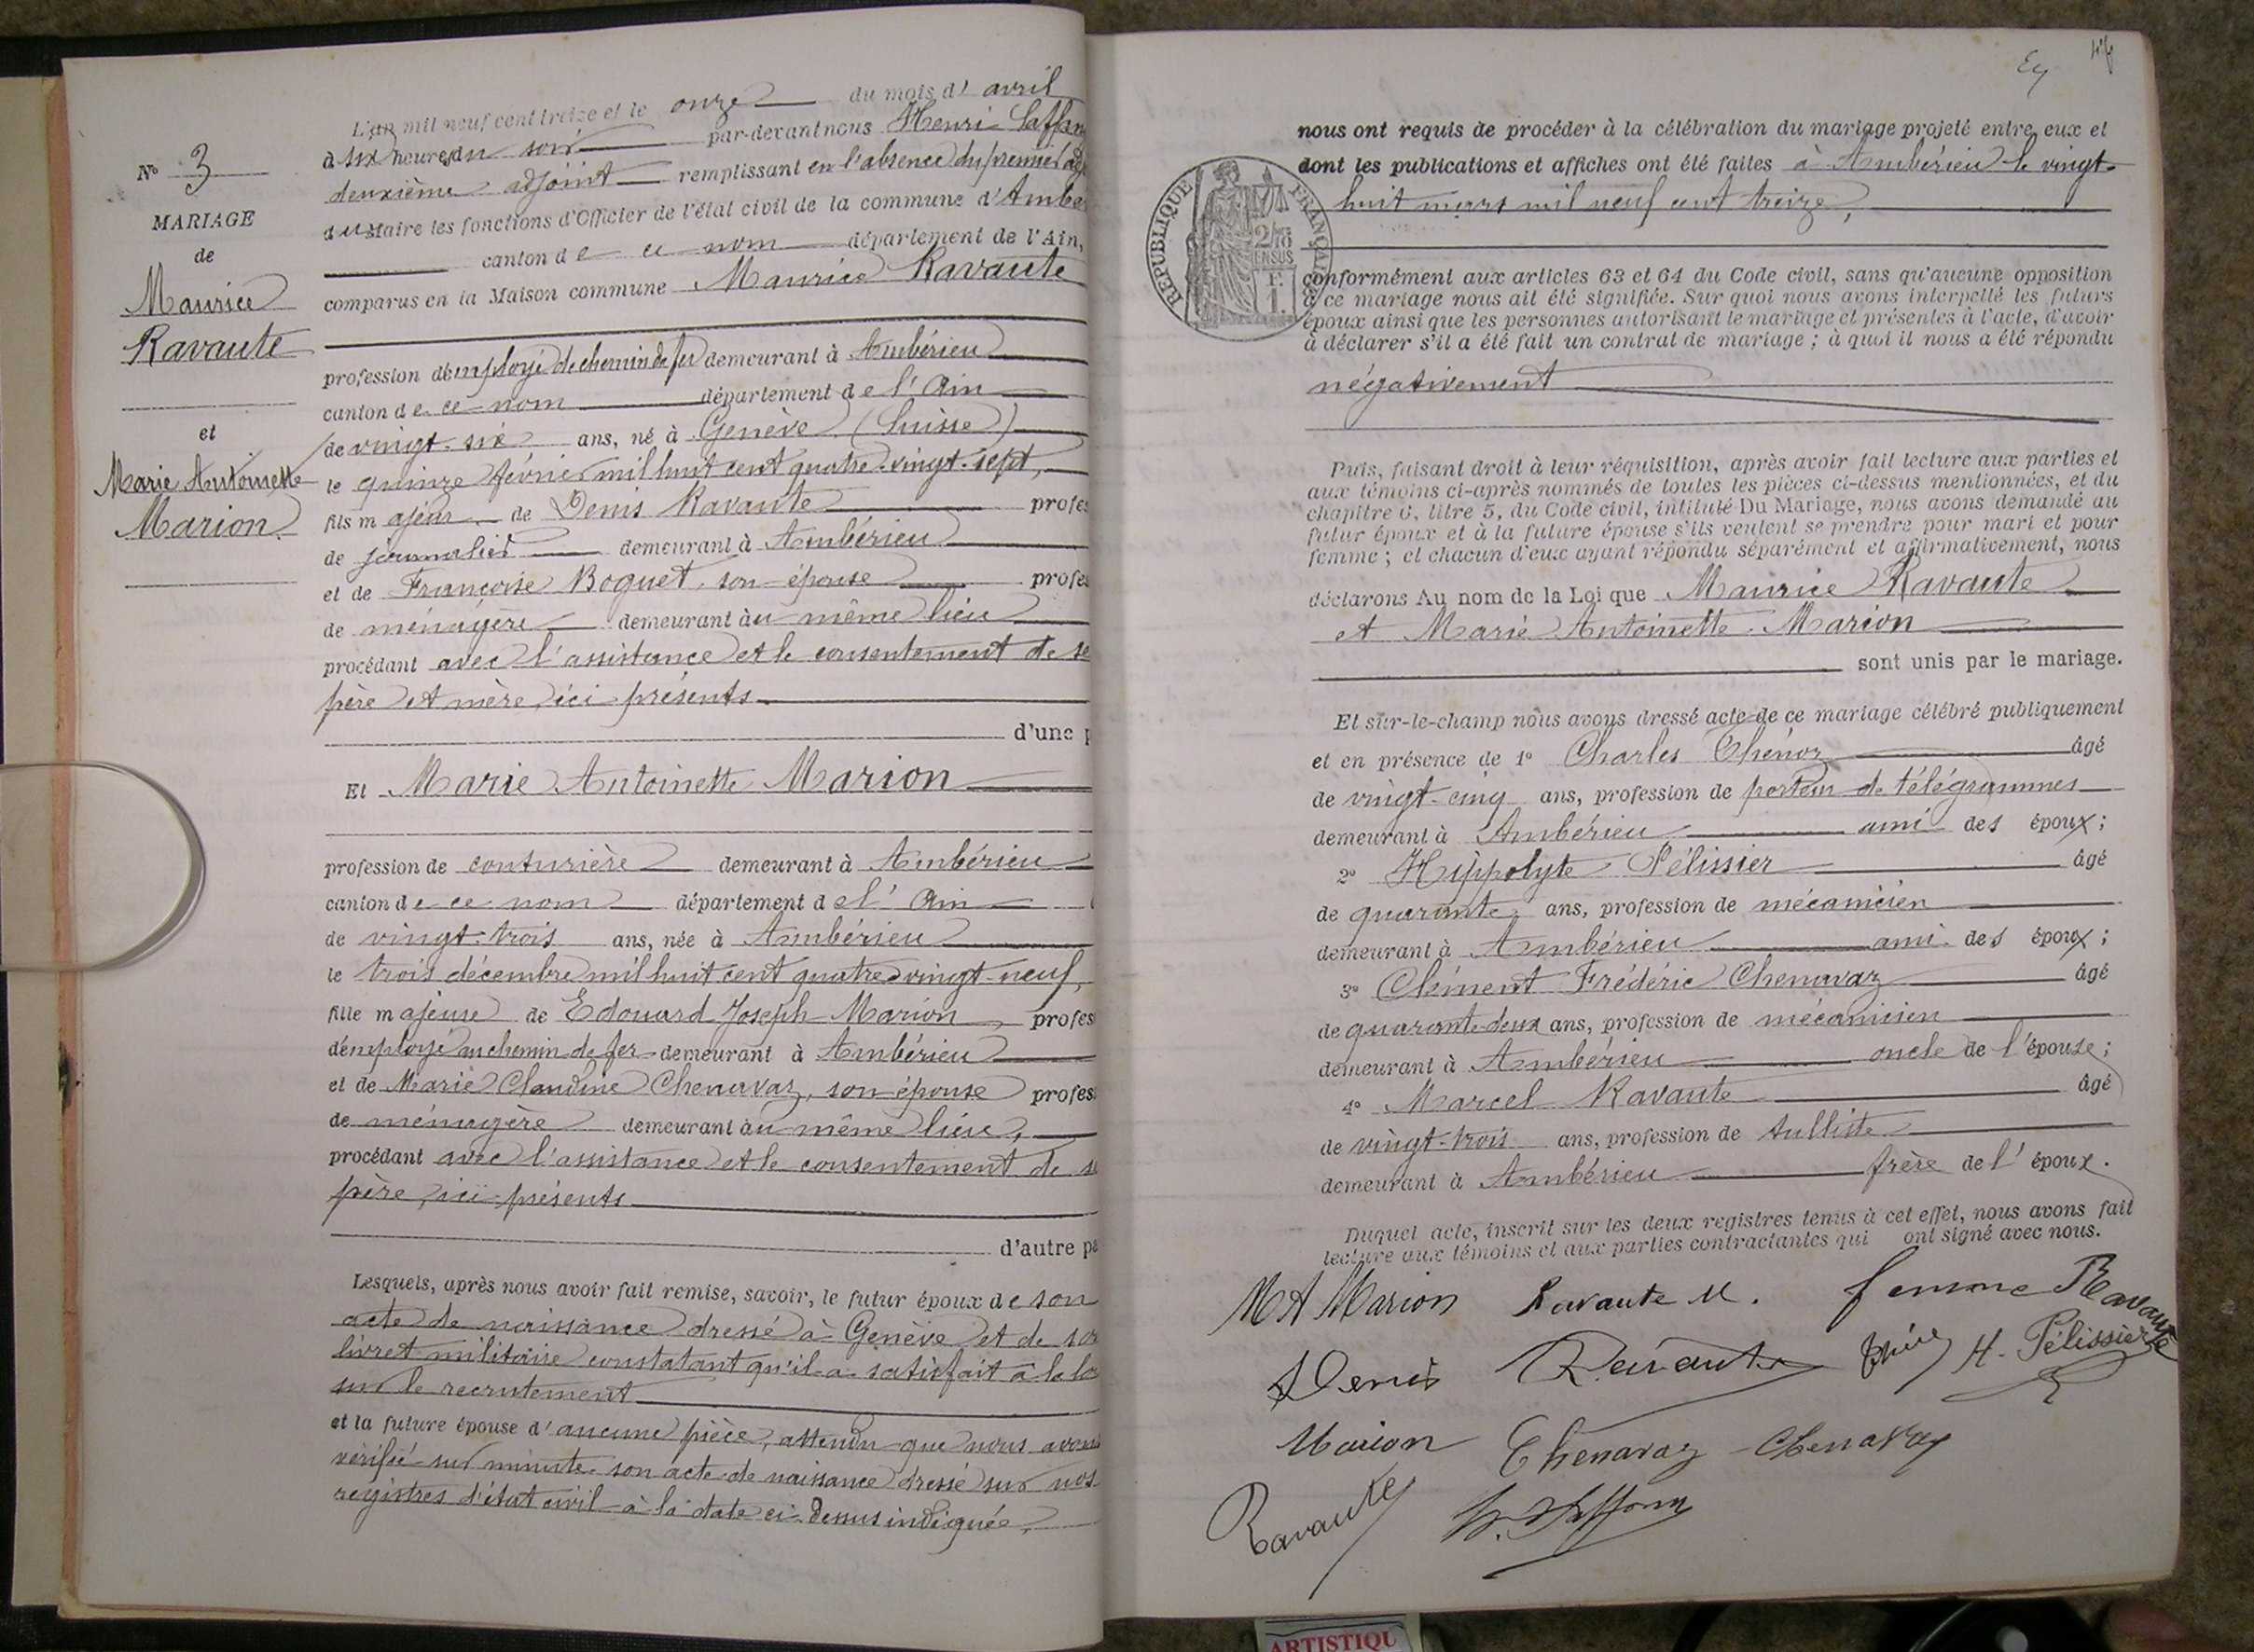 N° 3
MARIAGE
de
Maurice
Ravaute
et
Marie Antoinette
Marion
L'an mil neuf cent treize et le onze du mois d' avril
à six heures du soir par-devant nous Henri
deuxième adjoint remplissant en l'absence du premier
du Maire les fonctions d'Officier de l'état civil de la commune d'Ambé
canton de ce nom département de l'Ain,
comparus en la Maison commune Maurice Ravaute
profession d'employé de chemin de fer demeurant à Ambérieu
canton de ce nom département de l'Ain
de vingt-six ans, né à Genève (Suisse)
le quinze février mil huit cent quatre-vingt-sept,
fils majeur de Denis Ravaute profes
de journalier demeurant à Ambérieu
et de Françoise Boguet, son épouse profes
de ménagère demeurant au même lieu
procédant avec l'assistance et le consentement de se
père et mère, ici présents
d'une p
Et Marie Antoinette Marion
profession de couturière demeurant à Ambérieu
canton de ce nom département de l'Ain
de vingt-trois ans, née à Ambérieu
le trois décembre mil huit cent quatre-vingt-neuf,
fille majeure de Edouard Joseph Marion, profes
d'employé au chemin de fer demeurant à Ambérieu
et de Marie Claudine Chenavaz, son épouse profes
de ménagère demeurant au même lieu,
procédant avec l'assistance et le consentement de s
père, ici présents
d'autre pa
Lesquels, après nous avoir fait remise, savoir, le futur époux de son
acte de naissance dressé à Genève et de son
livret militaire constatant qu'il a satisfait à la lo
sur le recrutement
et la future épouse d'aucune pièce, attendu que nous avons
vérifié sur minute son acte de naissance dressé sur nos
registres d'état civil à la date ci-dessus indiquée.
nous ont requis de procéder à la célébration du mariage projeté entre eux et
dont les publications et affiches ont été faites à Ambérieu le vingt-
huit mars mil neuf cent treize,
RÉPUBLIQUE FRANÇAISE
2/10
EN SUS
F.
1.
conformément aux articles 63 et 64 du Code civil, sans qu'aucune opposition
à ce mariage nous ait été signifiée. Sur quoi nous avons interpellé les futurs
époux ainsi que les personnes autorisant le mariage et présentes à l'acte, d'avoir
à déclarer s'il a été fait un contrat de mariage ; à quoi il nous a été répondu
négativement
Puis, faisant droit à leur réquisition, après avoir fait lecture aux parties et
aux témoins ci-après nommés de toutes les pièces ci-dessus mentionnées, et du
chapitre 6, titre 5, du Code civil, intitulé Du Mariage, nous avons demandé au
futur époux et à la future épouse s'ils veulent se prendre pour mari et pour
femme ; et chacun d'eux ayant répondu séparément et affirmativement, nous
déclarons Au nom de la Loi que Maurice Ravaute
et Marie Antoinette Marion
sont unis par le mariage.
Et sur-le-champ nous avons dressé acte de ce mariage célébré publiquement
et en présence de 1° Charles Thénoz âgé
de vingt-cinq ans, profession de porteur de télégrammes
demeurant à Ambérieu ami des époux ;
2° Hippolyte Pélissier âgé
de quarante ans, profession de mécanicien
demeurant à Ambérieu ami des époux ;
3° Clément Frédéric Chenavaz âgé
de quarante-deux ans, profession de mécanicien
demeurant à Ambérieu oncle de l'épouse ;
4° Marcel Ravaute âgé
de vingt-trois ans, profession de tulliste
demeurant à Ambérieu frère de l'époux.
Duquel acte, inscrit sur les deux registres tenus à cet effet, nous avons fait
lecture aux témoins et aux parties contractantes qui ont signé avec nous.
MA Marion Ravaute M. femme Ravaute
Denis Ravaute H. Pélissier
Marion Chenavaz Chenavaz
Ravaute
ARTISTIQU